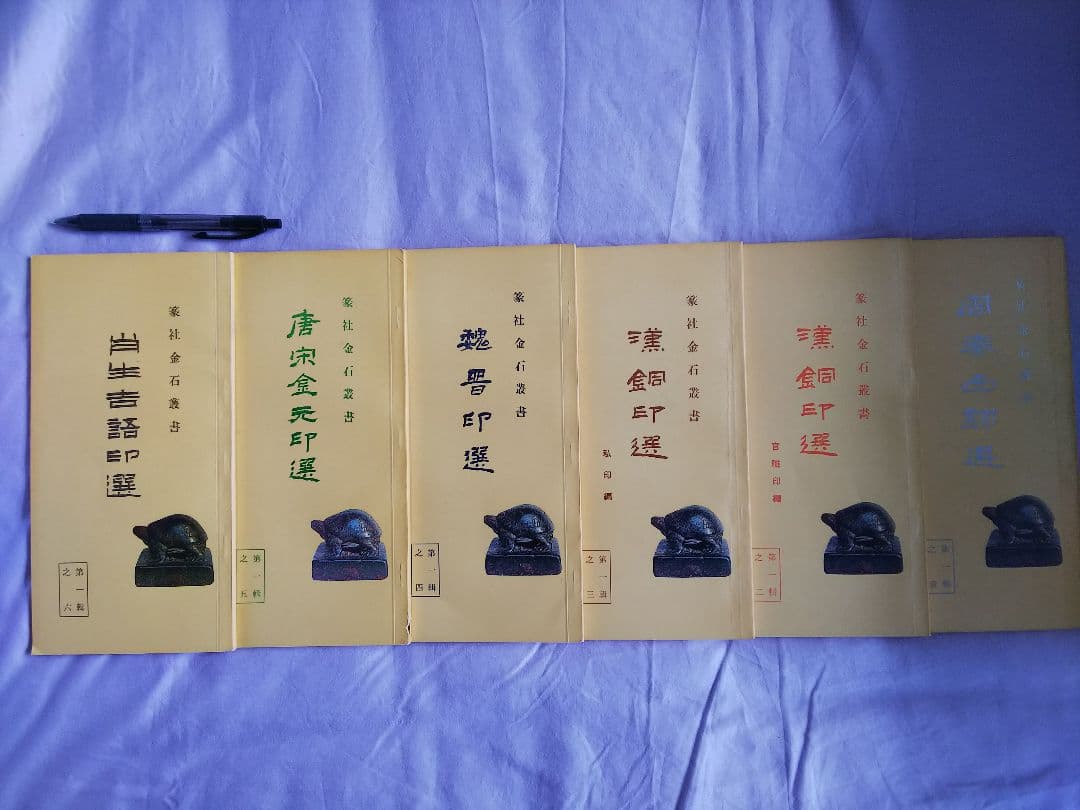 篆社金石叢書
肖生吉語印選
第一輯
之六
篆社金石叢書
唐宋金元印選
第一輯
之五
篆社金石叢書
魏晋印選
第一輯
之四
篆社金石叢書
漢銅印選
私印編
第一輯
之三
篆社金石叢書
漢銅印選
官職印編
第一輯
之二
篆社金石叢書
周秦古鉨選
第一輯